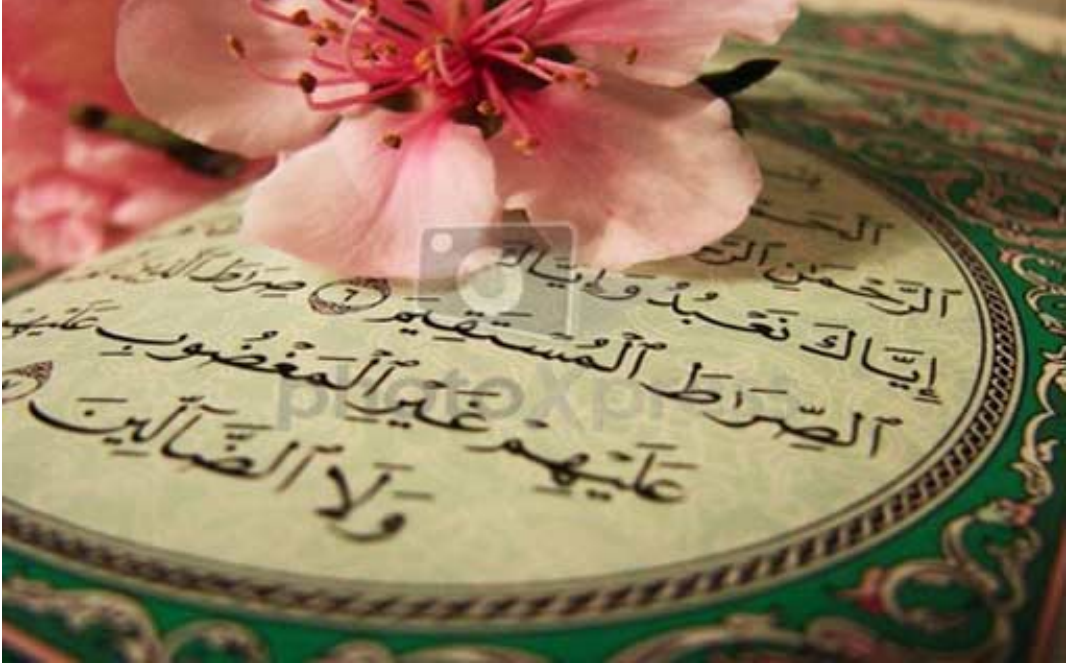 ٱلرَّحْمَٰنِ
إِيَّاكَ نَعْبُدُ وَإِيَّاكَ
ٱلصِّرَٰطَ ٱلْمُسْتَقِيمَ ٦ صِرَٰطَ ٱلَّذِينَ
عَلَيْهِمْ غَيْرِ ٱلْمَغْضُوبِ عَلَيْهِمْ
وَلَا ٱلضَّآلِّينَ